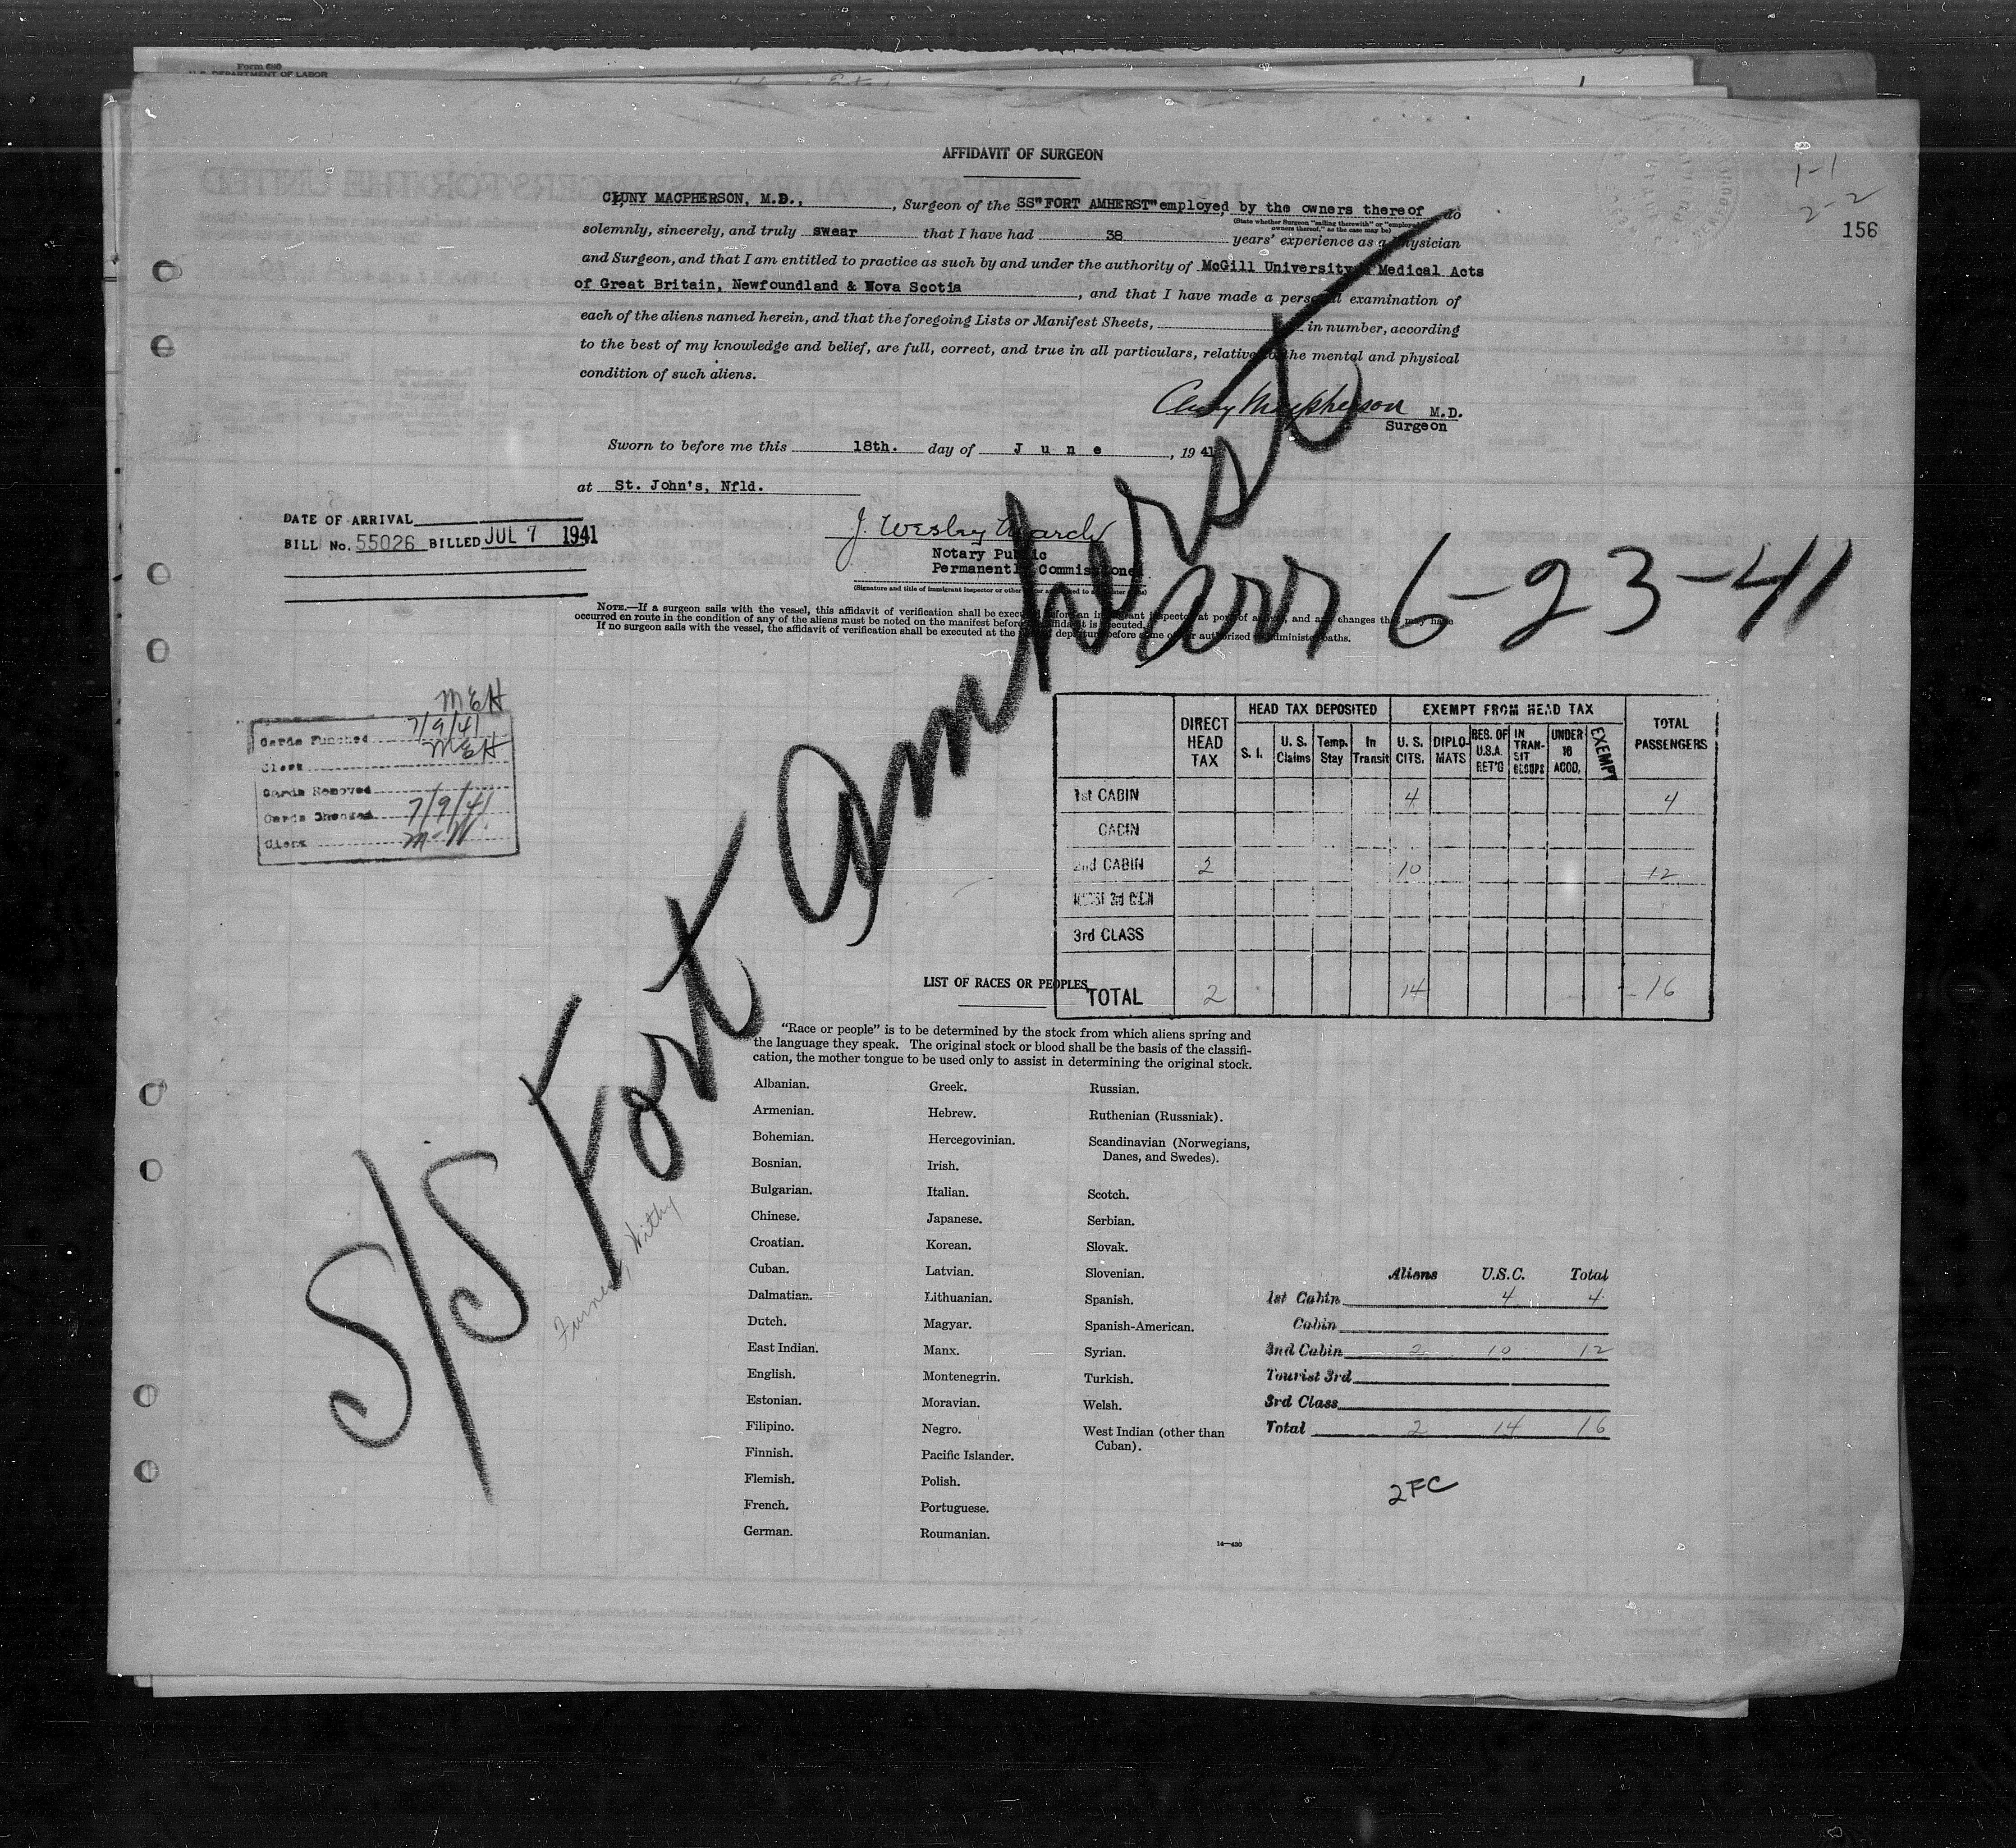 Form 680
U.S. DEPARTMENT OF LABOR
AFFIDAVIT OF SURGEON
1-1
2-2
156
CLUNY MACPHERSON, M.D., , Surgeon of the SS"FORT AMHERST" employed by the owners thereof do
(State whether Surgeon "sailing therewith" or "employed by owners thereof," as the case may be)
solemnly, sincerely, and truly swear that I have had 38 years' experience as a Physician
and Surgeon, and that I am entitled to practice as such by and under the authority of McGill University Medical Acts
of Great Britain, Newfoundland & Nova Scotia , and that I have made a personal examination of
each of the aliens named herein, and that the foregoing Lists or Manifest Sheets, in number, according
to the best of my knowledge and belief, are full, correct, and true in all particulars, relative to the mental and physical
condition of such aliens.
Cluny Macpherson M.D.
Surgeon
Sworn to before me this 18th. day of J u n e , 19 41
at St. John's, Nfld.
DATE OF ARRIVAL
BILL No. 55026 BILLED JUL 7 1941
J. Wesley March
Notary Public
Permanently Commissioned.
(Signature and title of immigrant inspector or other officer authorized to administer oaths)
NOTE.—If a surgeon sails with the vessel, this affidavit of verification shall be executed before an immigrant inspector at port of arrival, and any changes that may have
occurred en route in the condition of any of the aliens must be noted on the manifest before affidavit is executed.
If no surgeon sails with the vessel, the affidavit of verification shall be executed at the port of departure before some officer authorized to administer oaths.
S/S Fort Amherst
arr 6-23-41
Furness, Withy
MEH
Cards Punched 7/9/41
Clerk MEH
Cards Removed
Cards Checked 7/9/41
Clerk M-W
DIRECT HEAD TAX HEAD TAX DEPOSITED EXEMPT FROM HEAD TAX TOTAL PASSENGERS
S. I. U. S. Claims Temp. Stay In Transit U. S. CITS. DIPLO-MATS RES. OF U.S.A. RET'G IN TRAN-SIT GROUPS UNDER 16 ACOD. EXEMPT
1st CABIN 4 4
CABIN
2nd CABIN 2 10 12
3rd CLASS
TOTAL 2 14 16
LIST OF RACES OR PEOPLES
"Race or people" is to be determined by the stock from which aliens spring and
the language they speak. The original stock or blood shall be the basis of the classifi-
cation, the mother tongue to be used only to assist in determining the original stock.
Albanian.
Armenian.
Bohemian.
Bosnian.
Bulgarian.
Chinese.
Croatian.
Cuban.
Dalmatian.
Dutch.
East Indian.
English.
Estonian.
Filipino.
Finnish.
Flemish.
French.
German.
Greek.
Hebrew.
Hercegovinian.
Irish.
Italian.
Japanese.
Korean.
Latvian.
Lithuanian.
Magyar.
Manx.
Montenegrin.
Moravian.
Negro.
Pacific Islander.
Polish.
Portuguese.
Roumanian.
Russian.
Ruthenian (Russniak).
Scandinavian (Norwegians,
Danes, and Swedes).
Scotch.
Serbian.
Slovak.
Slovenian.
Spanish.
Spanish-American.
Syrian.
Turkish.
Welsh.
West Indian (other than
Cuban).
Aliens U.S.C. Total
1st Cabin 4 4
Cabin
2nd Cabin 2 10 12
Tourist 3rd
3rd Class
Total 2 14 16
2FC
14—430